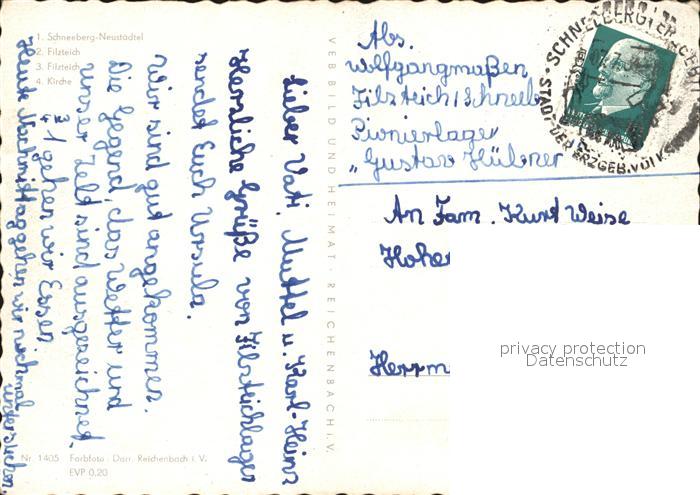 1. Schneeberg-Neustädtel
2. Filzteich
3. Filzteich
4. Kirche
Lieber Vati, Muttel u. Karl-Heinz
Herzliche Grüße vom Filzteichlager
sendet Euch Ursula.
Wir sind gut angekommen.
Die Gegend, das Wetter und
unser Zelt sind ausgezeichnet.
3/4 1 gehen wir Essen
Heute Nachmittag gehen wir nochmal
Nr. 1405 Farbfoto: Darr, Reichenbach i. V.
EVP 0,20
VEB BILD UND HEIMAT · REICHENBACH i. V.
Abs.
Wolfgangmaßen
Filzteich/Schneeb
Pionierlager
"Gustav Hübner
SCHNEEBERG
STADT DER ERZGEB. VOLKS
An Fam. Kurt Weise
Hohe
Herrm
privacy protection
Datenschutz